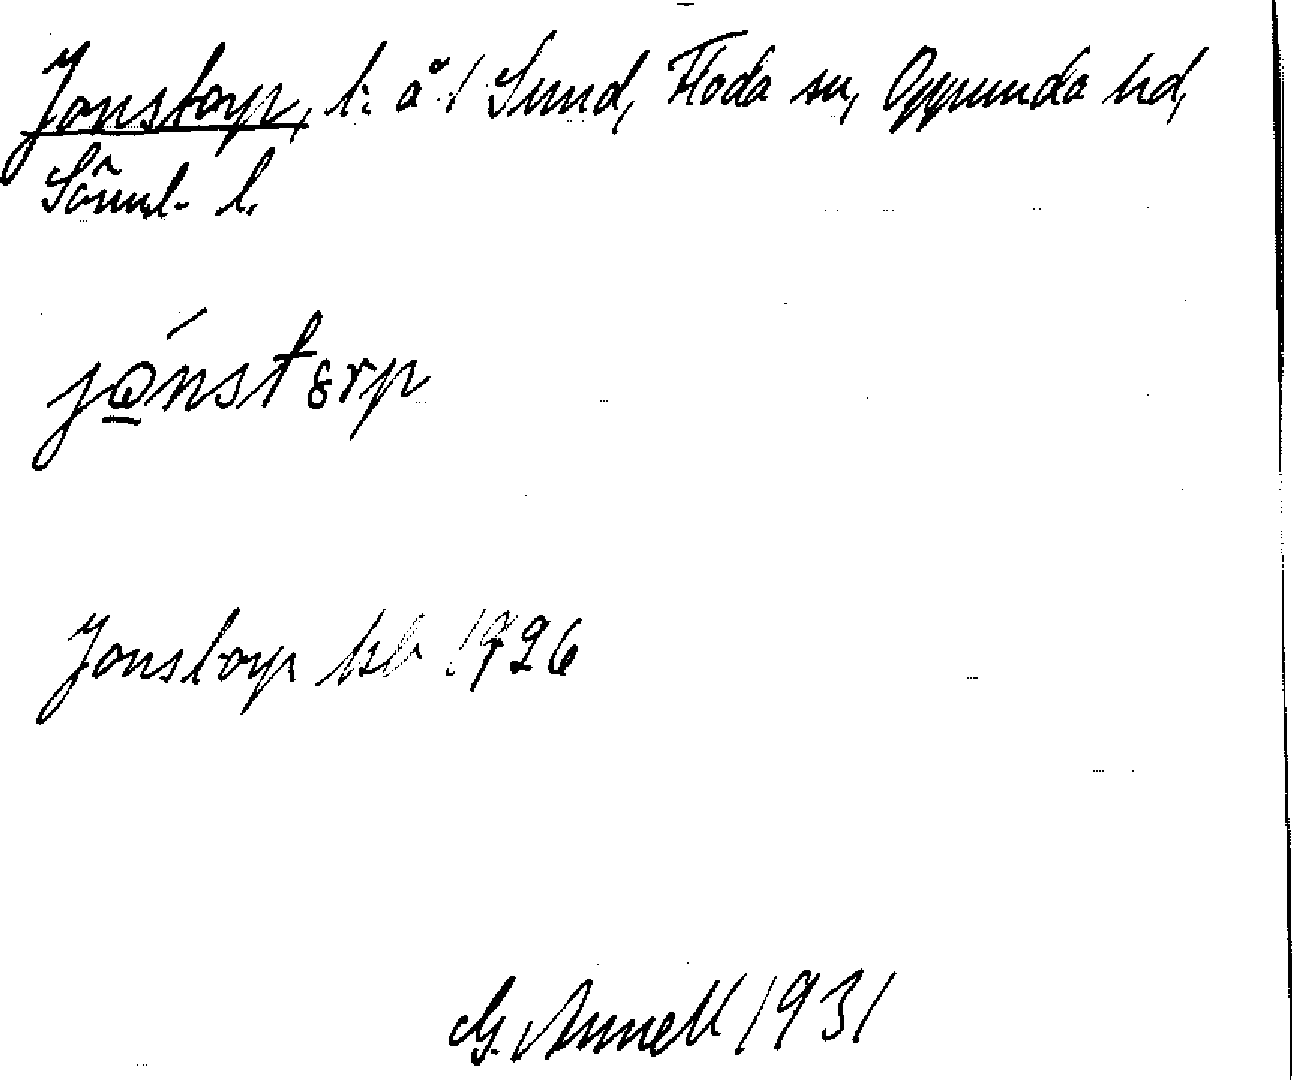 Jonstorp, t: å 1/ Sund, Floda sn, Oppunda hd,
Sörml. l.
jo̲nstorp
Jonstorp kb 1926
G. Annell 1931